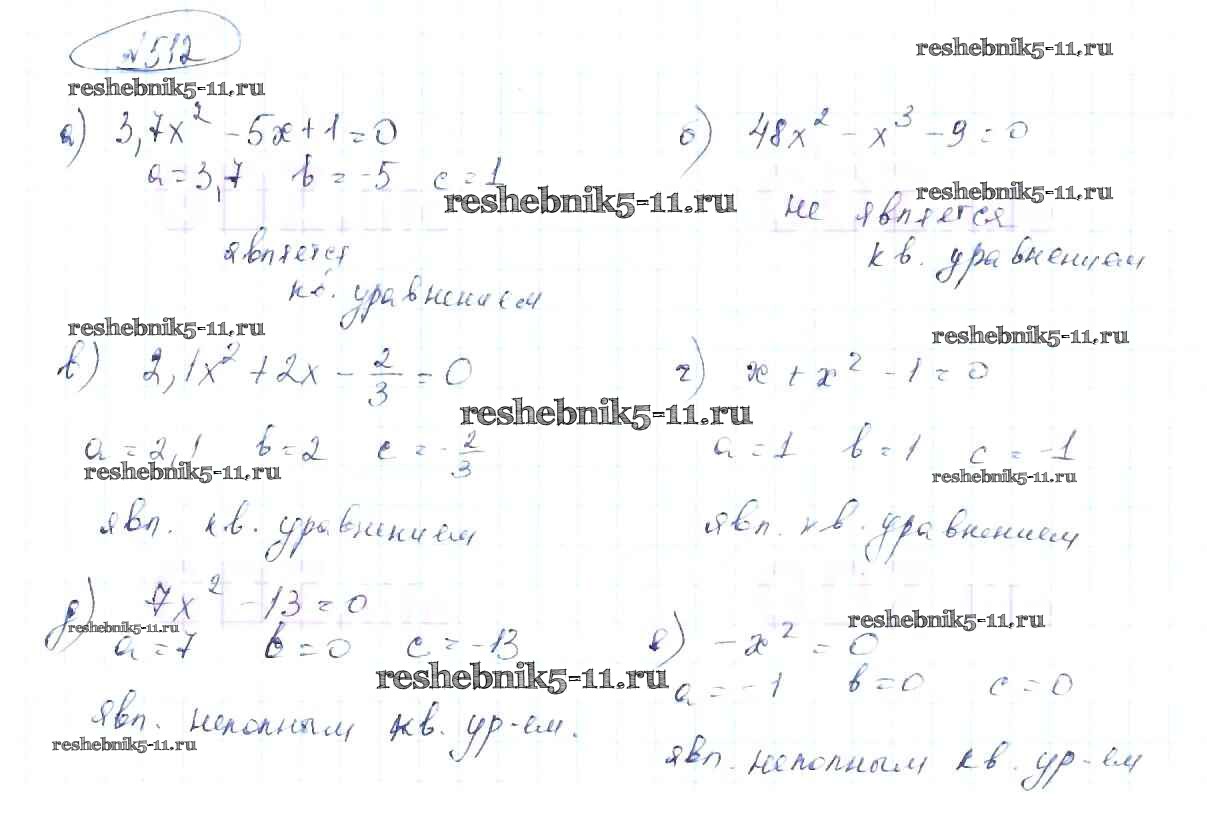 №512
reshebnik5-11.ru
reshebnik5-11.ru
а) 3,7x² - 5x + 1 = 0
a = 3,7 b = -5 c = 1
reshebnik5-11.ru
является
кв. уравнением
б) 48x² - x³ - 9 = 0
reshebnik5-11.ru
не является
кв. уравнением
reshebnik5-11.ru
reshebnik5-11.ru
в) 2,1x² + 2x - 2/3 = 0
reshebnik5-11.ru
a = 2,1 b = 2 c = -2/3
reshebnik5-11.ru
явл. кв. уравнением
г) x + x² - 1 = 0
a = 1 b = 1 c = -1
reshebnik5-11.ru
явл. кв. уравнением
д) 7x² - 13 = 0
reshebnik5-11.ru
a = 7 b = 0 c = -13
reshebnik5-11.ru
явл. неполным кв. ур-ем.
reshebnik5-11.ru
reshebnik5-11.ru
е) -x² = 0
a = -1 b = 0 c = 0
явл. неполным кв. ур-ем